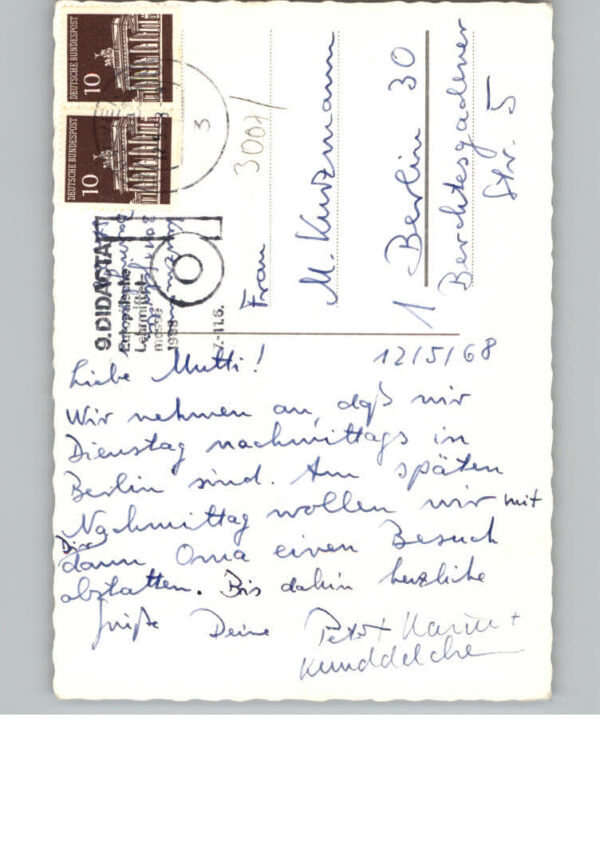 DEUTSCHE BUNDESPOST
10
DEUTSCHE BUNDESPOST
10
3
9. DIDACTA
Europäische
Lehrmittel-
messe
1968
7.-11.6.
30071
Frau
M. Kurzmann
1 Berlin 30
Berchtesgadener
Str. 5
12/5/68
Liebe Mutti!
Wir nehmen an, daß wir
Dienstag nachmittags in
Berlin sind. Am späten
Nachmittag wollen wir mit
Dir
dann Oma einen Besuch
abstatten. Bis dahin herzliche
Grüße Deine Peter + Karin +